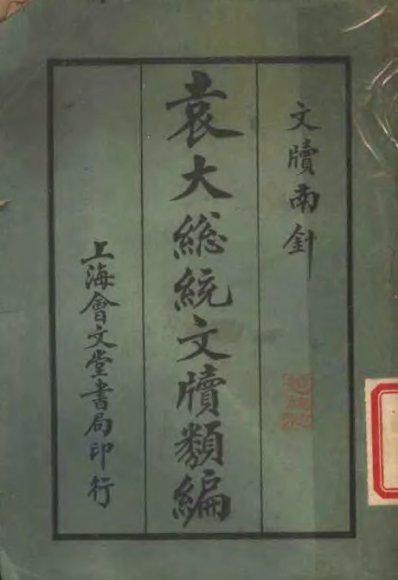 文牘南針
袁大總統文牘類編
上海會文堂書局印行